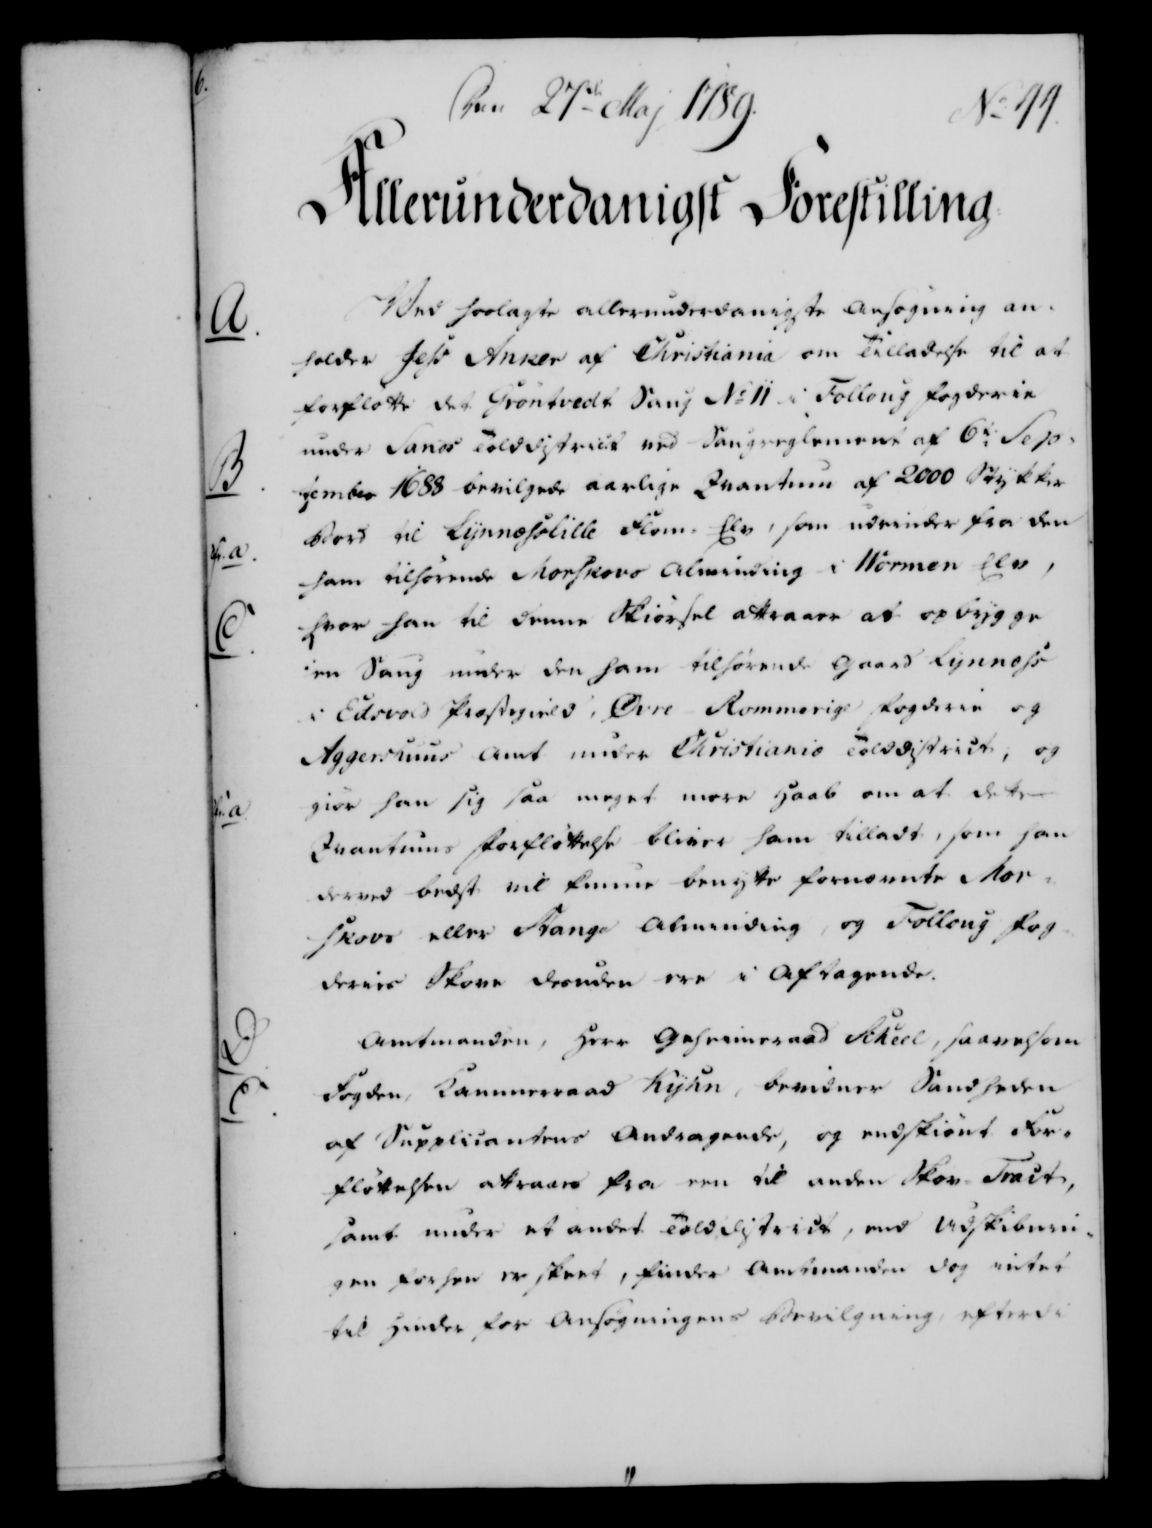 6.
Den 27de Maj 1789.
No 44.
Allerunderdanigst Forestilling
A.
Ved hoslagte allerunderdanigste Ansøgning an-
holder Jess Anker af Christiania om Tilladelse til at
forfløtte det Gröntvedt Saug No 11 i Folloug Fogderie
under Sands Tolddistrict ved Saugreglement af 6te Sep-
B.
tember 1688 bevilgede aarlige Qvantum af 2000 Stykker
Bord til Lynnæsslille Flom-Elv, som udrinder fra den
a.
ham tilhørende Morskovs Alminding i Wormen Elv,
C.
hvor han til denne Skiørsel attraaer at opbygge
en Saug under den ham tilhørende Gaard Lynnæss
i Edsvold Præstegield, Øvre Rommerige Fogderie og
Aggershuus Amt under Christianiæ Tolddistrict, og
a.
giør han sig saa meget mere Haab om at dette
Qvantums Forflöttelse bliver ham tilladt, som han
derved bedst vil kunne benytte fornævnte Mor-
skovs eller Stange Alminding, og Folloug Fog-
deries Skove desuden ere i Aftagende.
D.
Amtmanden, Herr Geheimeraad Scheel, saavelsom
E.
Fogden, Kammerraad Kyhn, bevidner Sandheden
af Supplicantens Andragende, og endskiönt For-
flöttelsen attraaes fra een til anden Skov-Tract,
samt under et andet Tolddistrict, end Udskibnin-
gen forhen er skeet, finder Amtmanden dog intet
til Hinder for Ansøgningens Bevilgning, efterdi